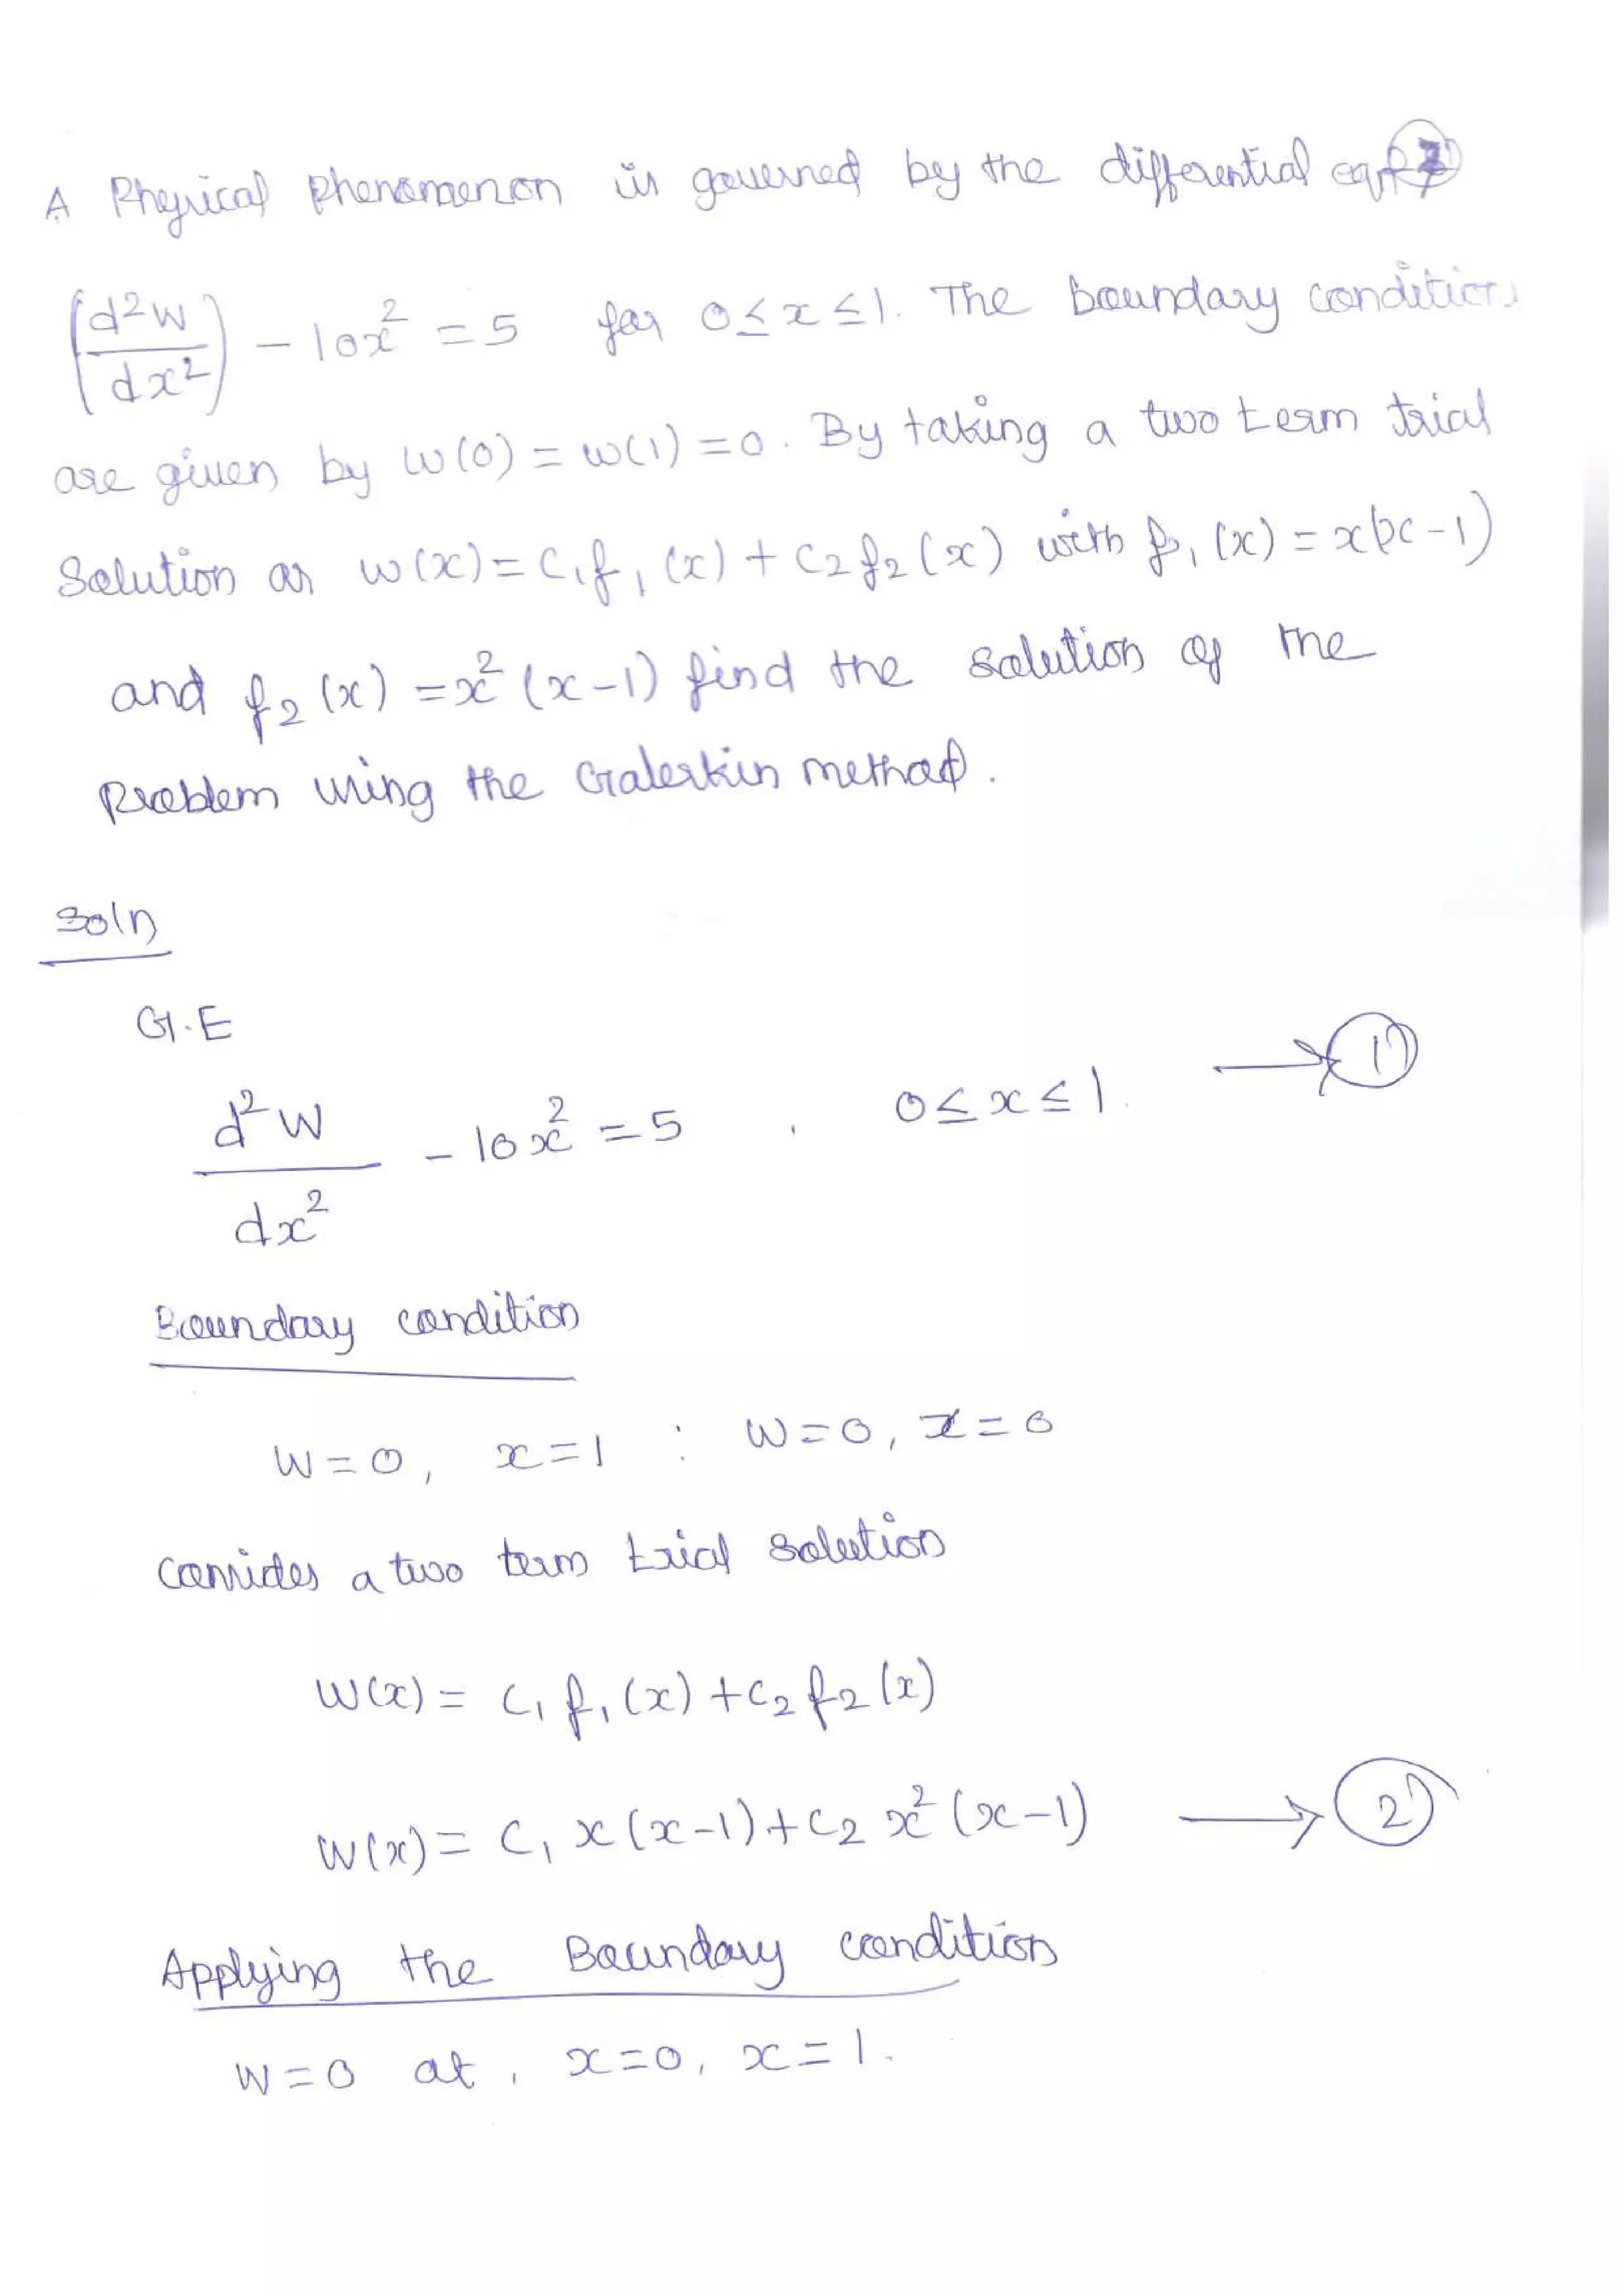 A Physical phenomenon is governed by the differential eqn
(d²w/dx²) - 10x² = 5 for 0 ≤ x ≤ 1. The boundary conditions
are given by w(0) = w(1) = 0. By taking a two term trial
Solution as w(x) = C₁f₁(x) + C₂f₂(x) with f₁(x) = x(x-1)
and f₂(x) = x²(x-1) find the solution of the
Problem using the Galerkin method.
Soln
G.E
d²w/dx² - 10x² = 5 , 0 ≤ x ≤ 1. → ①
Boundary condition
W = 0, x = 1 : W = 0, x = 0
Consider a two term trial solution
W(x) = C₁ f₁(x) + C₂ f₂(x)
W(x) = C₁ x(x-1) + C₂ x²(x-1) → ②
Applying the Boundary condition
W = 0 at, x = 0, x = 1.